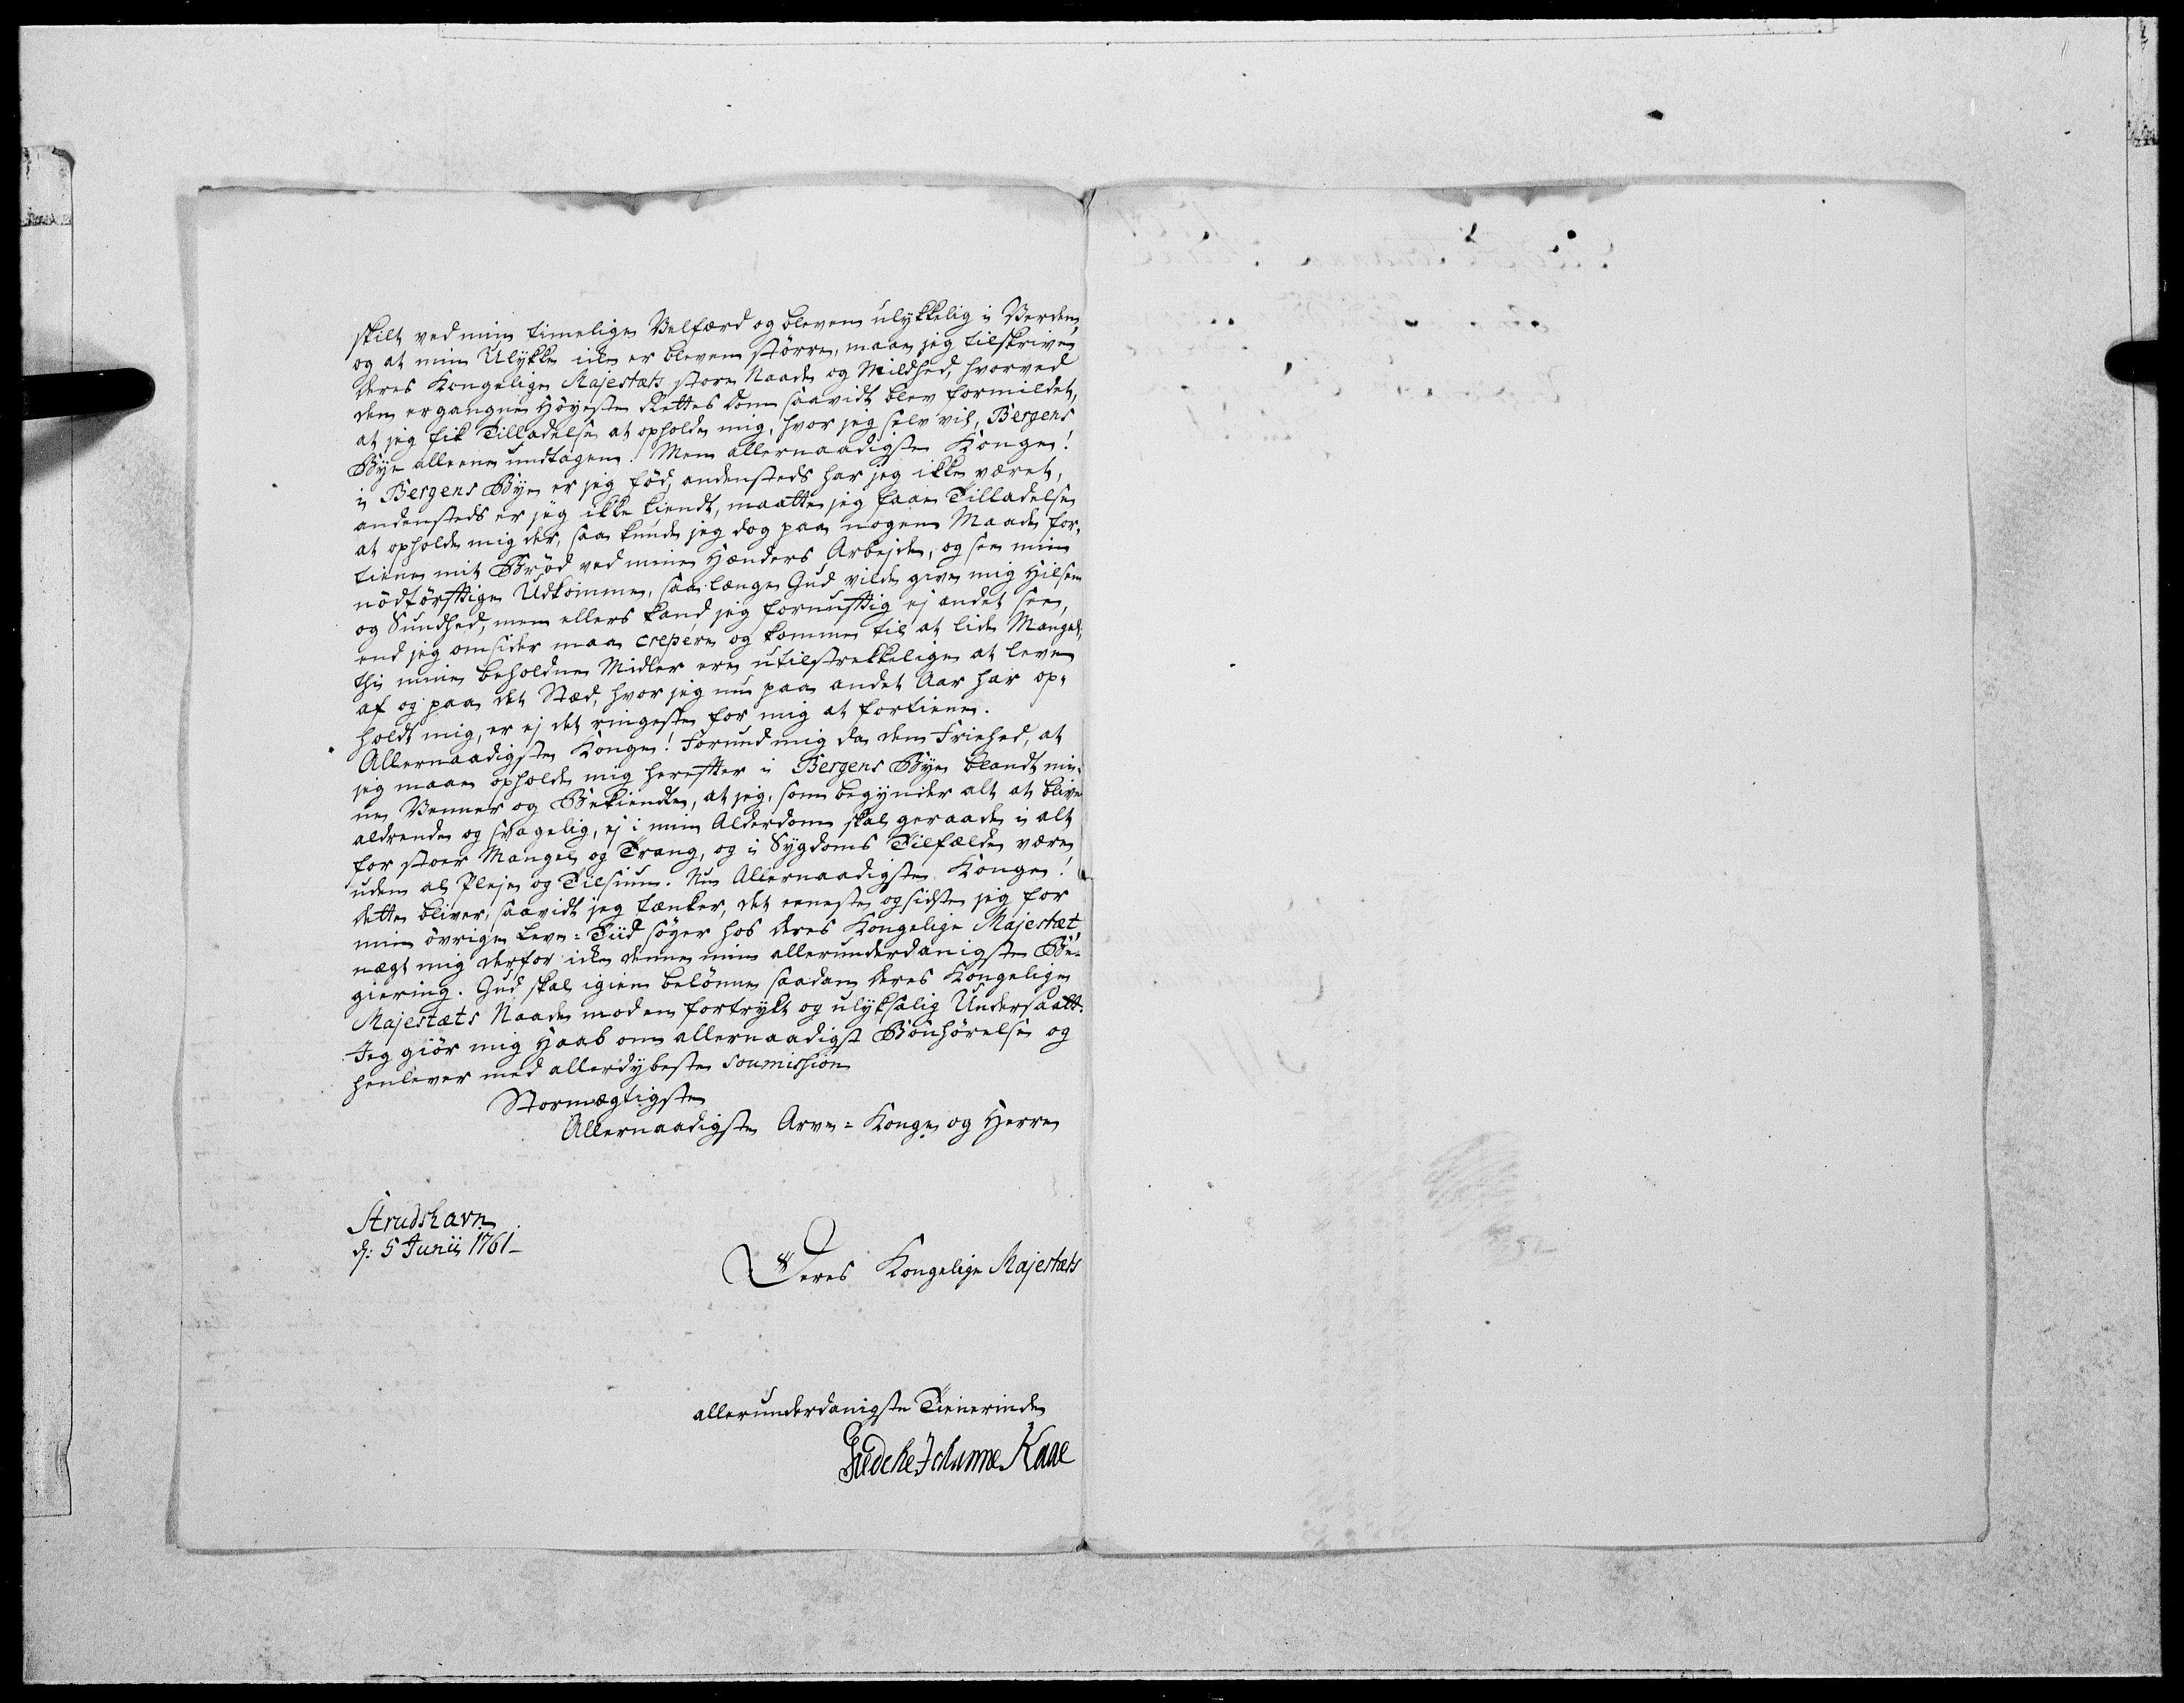 skilt ved min timelige Velfærd og bleven ulykkelig i Verden,
og at min Ulykke icke er bleven større, maae jeg tilskrive
Deres Kongelige Majestæts store Naade og Mildhed, hvorved
den ergangne Höyeste Rettes Dom saavidt blev formildet,
at jeg fik Tilladelse at opholde mig, hvor jeg selv vil, Bergens
Bye alleene undtagen. Men allernaadigste Konge!
i Bergens Bye er jeg fød, andensteds har jeg ikke været,
andensteds er jeg ikke kiendt, maatte jeg faae Tilladelse
at opholde mig der, saa kunde jeg dog paa nogen Maade for-
tiene mit Brød ved mine Hænders Arbejde, og see min
nödtörfftige Udkomme, saa længe Gud vilde give mig Hilsen
og Sundhed, men ellers kand jeg fornufftig ej andet see,
end jeg omsider maa crepere og komme til at lide Mangel,
thi mine beholdne Midler ere utilstrekkelige at leve
af og paa det Stæd, hvor jeg nu paa andet Aar har op-
holdt mig, er ej det ringeste for mig at fortiene.
Allernaadigste Konge! Forund mig da den Friehed, at
jeg maae opholde mig herefter i Bergens Bye blandt mi-
ne Venner og Bekiendte, at jeg, som begynder alt at blive
aldrende og svagelig, ej i min Alderdom skal geraade i alt
for stoer Mangel og Trang, og i Sygdoms Tilfælde være
uden al Pleje og Tilsiun. Nu Allernaadigste Konge!
dette bliver, saavidt jeg tænker, det eeneste og sidste jeg for
min övrige Leve=Tiid söger hos Deres Kongelige Majestæt,
nægt mig derfor icke denne min allerunderdanigste Be-
giering. Gud skal igien belönne saadan Deres Kongelige
Majestæts Naade mod en fortrykt og ulyksalig Undersaatt.
Jeg giör mig Haab om allernaadigst Bönhörelse og
henlever med allerdybeste Soumission
Stormægtigste
Allernaadigste Arve=Konge og Herre
Strudshavn
d: 5 Junii 1761
Deres Kongelige Majestæts
allerunderdanigste Tienerinde
Giedche Johanne Kaae